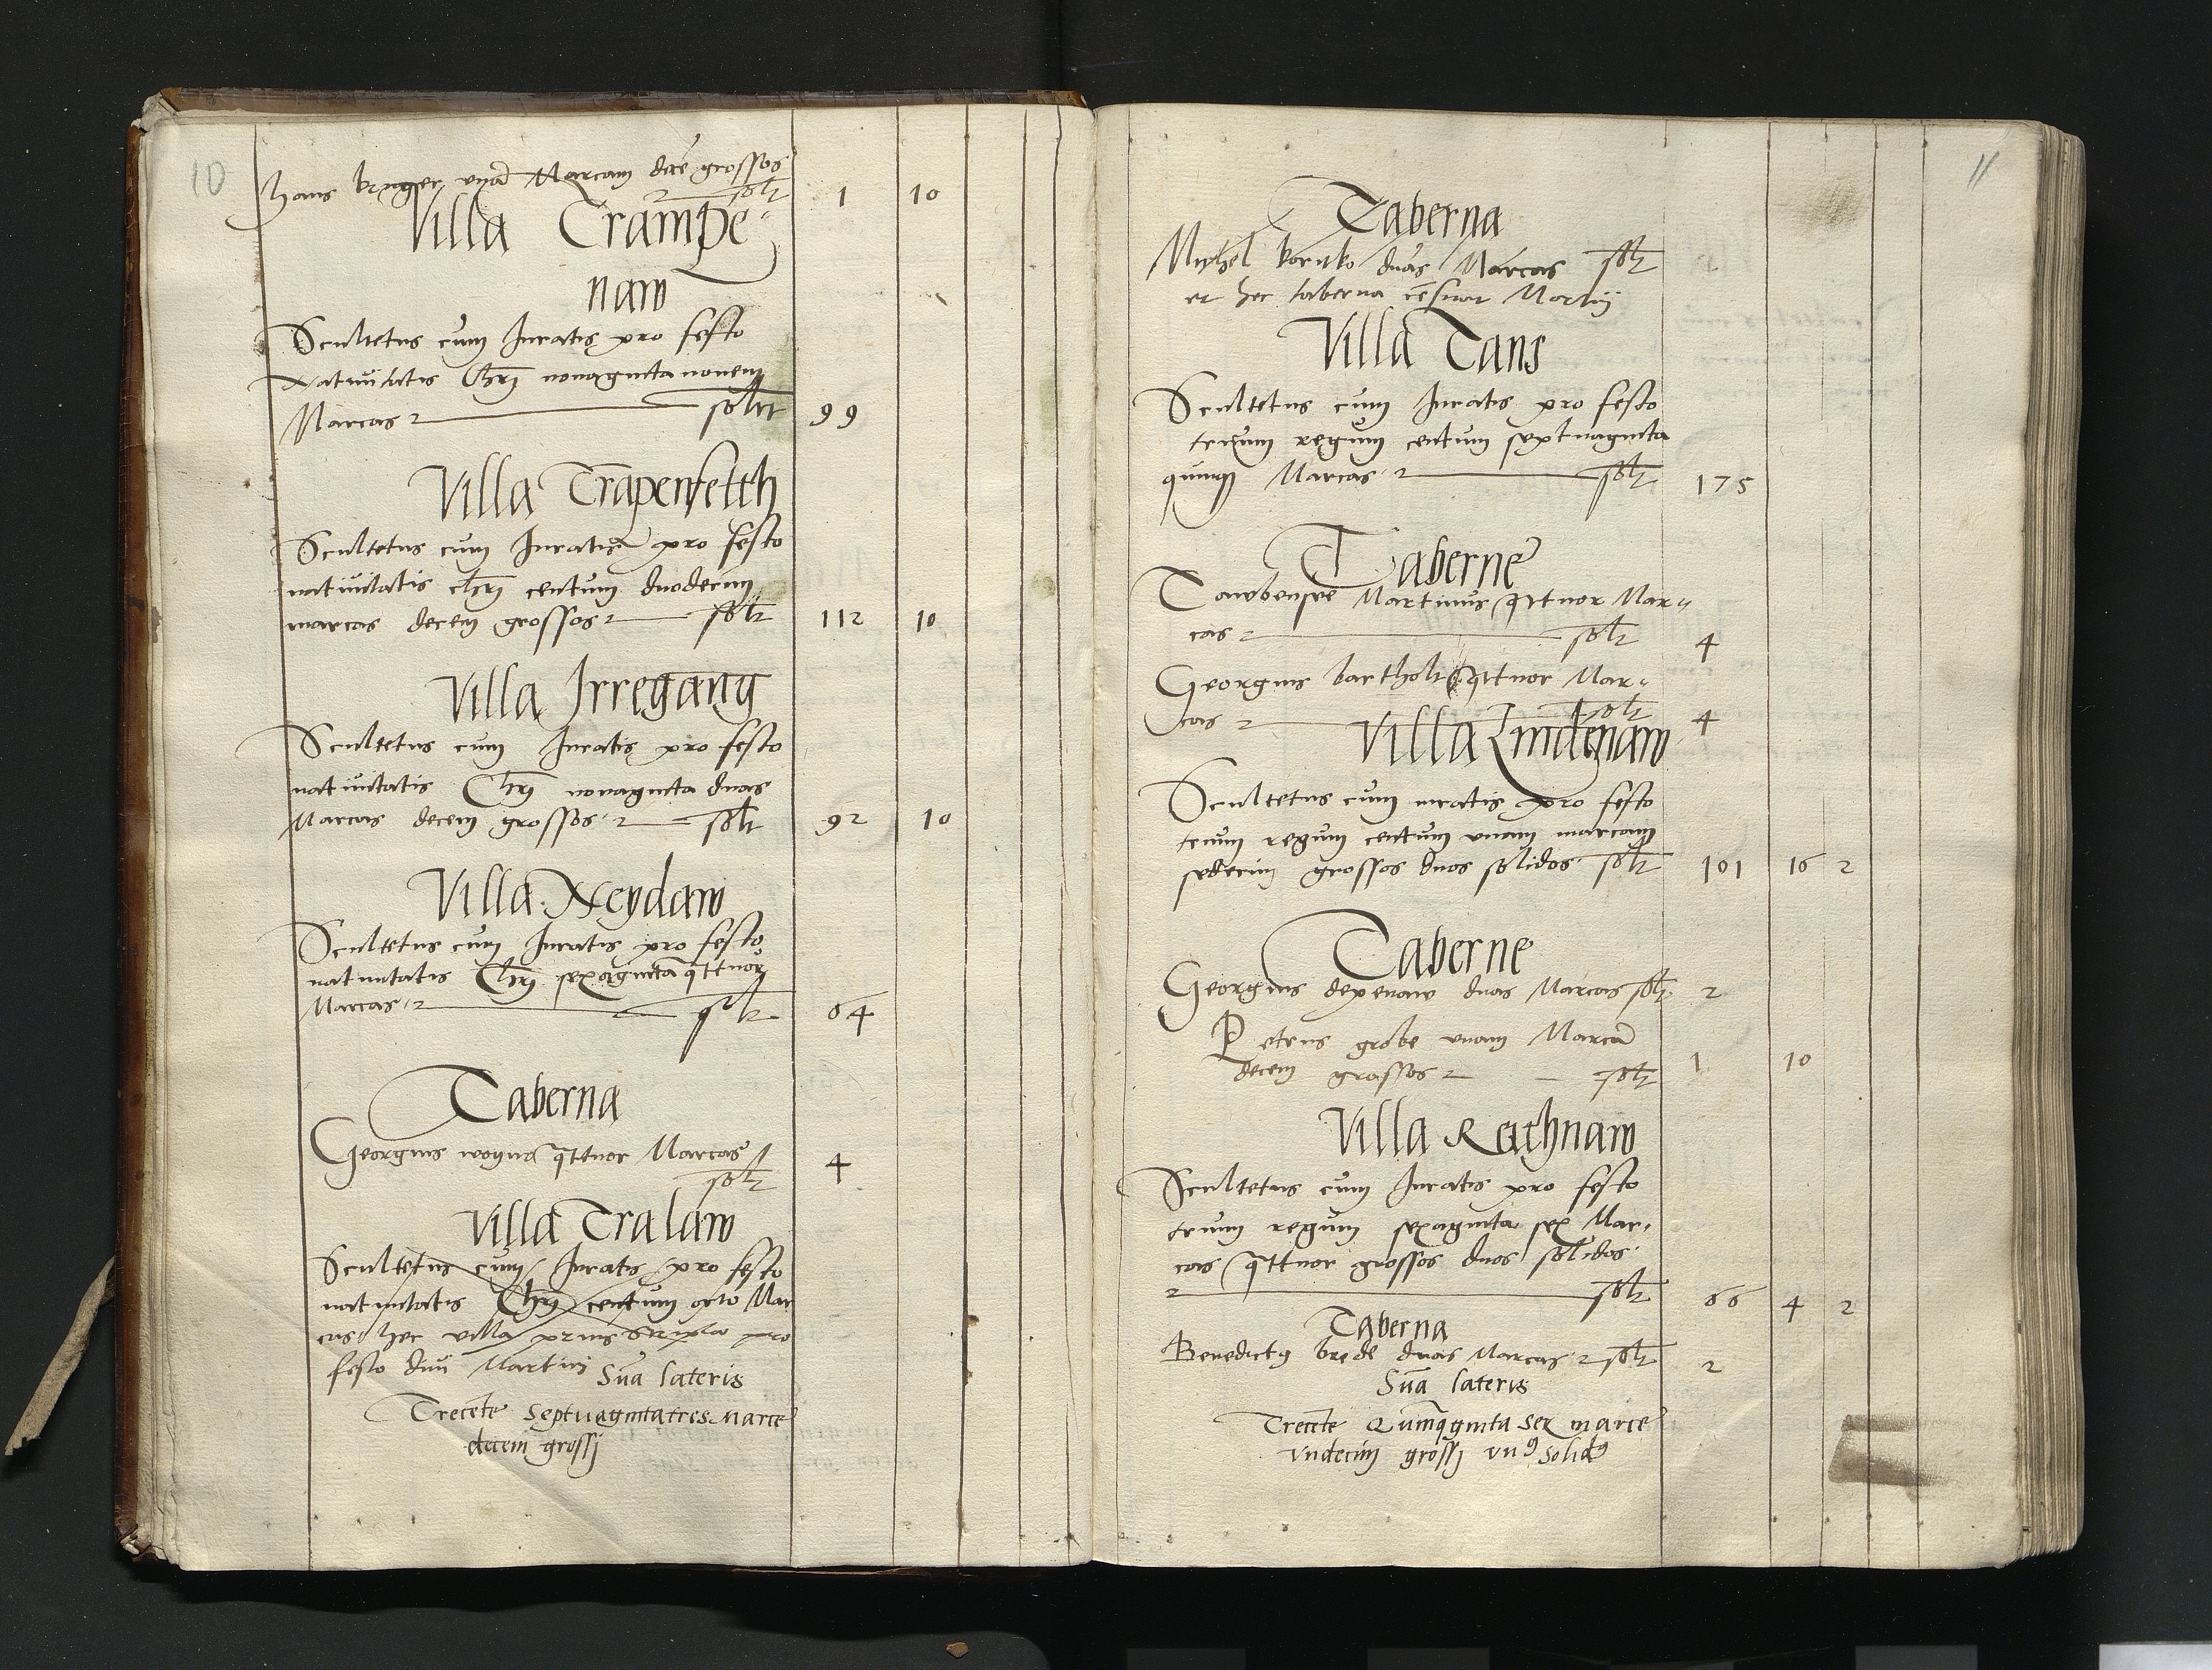 10
hans kruger unā Marcam decē grossos
solt 1 10
Villa Trampe-
naw
Scultetus cum Iuratis pro festo
nativitatis Chri nonaginta novem
Marcas solt 99
Villa Trapenfelth
Scultetus cum Iuratis pro festo
nativitatis chri centum duodecim
marcas decem grossos solt 112 10
Villa Irregang
Scultetus cum Iuratis pro festo
nativitatis Chri nonaginta duas
Marcas decem grossos solt 92 10
Villa Neydaw
Scultetus cum Iuratis pro festo
nativitatis Chri sexaginta qttuor
Marcas solt 64
Taberna
Georgius woyna qttuor Marcas
solt 4
Villa Tralaw
Scultetus cum Iuratis pro festo
nativitatis Chri centum octo Mar
cas hec villa prius scripta pro
festo divi Martini Sūa lateris
Trecēte septuagintatres marce
decem grossj
11
Taberna
Michel duas Marcas solt
et hec taberna cēsuat Martij
Villa Tans
Scultetus cum Iuratis pro festo
trium regum centum septuaginta
quinq Marcas solt 175
Taberne
Martinus qttuor Mar-
cas solt 4
Georgius bartholt qttuor Mar-
cas solt 4
Villa Lindenaw
Scultetus cum iuratis pro festo
trium regum centum unam marcam
sedecim grossos duos solidos solt 101 16 2
Taberne
Georgius dexenaw duas Marcas solt 2
Petrus grobe unam Marcā
decem grossos solt 1 10
Villa Rethnaw
Scultetus cum Iuratis pro festo
trium regum sexaginta sex Mar-
cas qttuor grossos duos solidos
solt 66 4 2
Taberna
Benedictꝰ brede duas Marcas solt 2
Sūa lateris
Trecēte Quīqginta sex marce
undecim grossj unꝰ solidꝰ